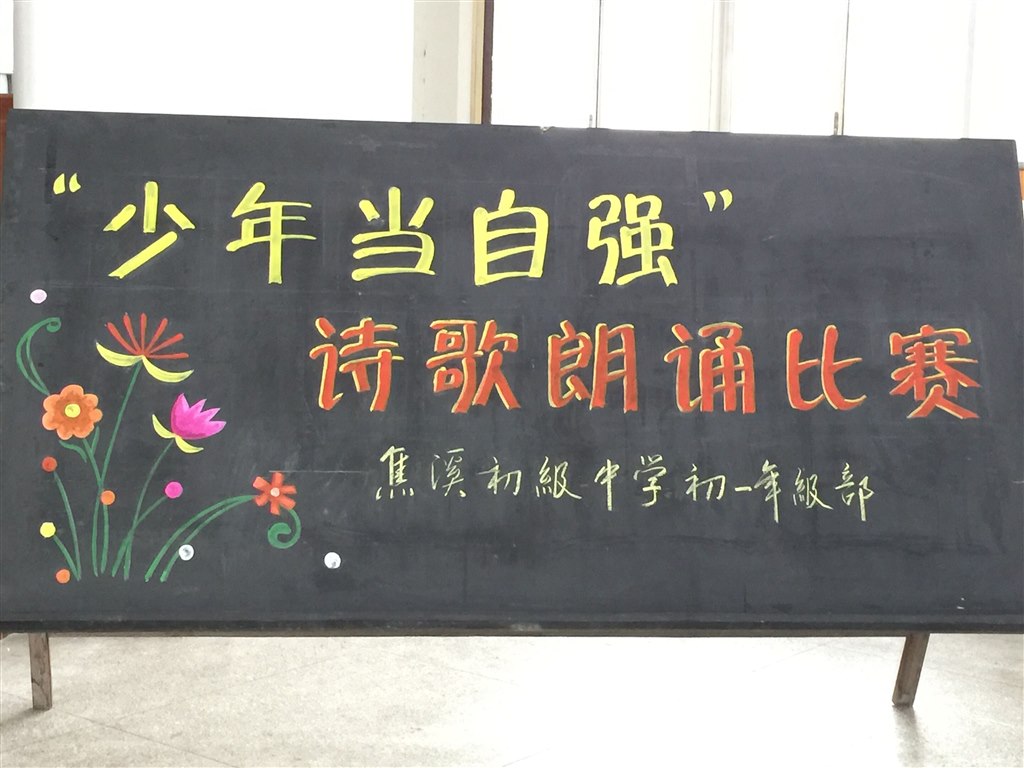 “少年当自强”
诗歌朗诵比赛
焦溪初級中学初一年級部